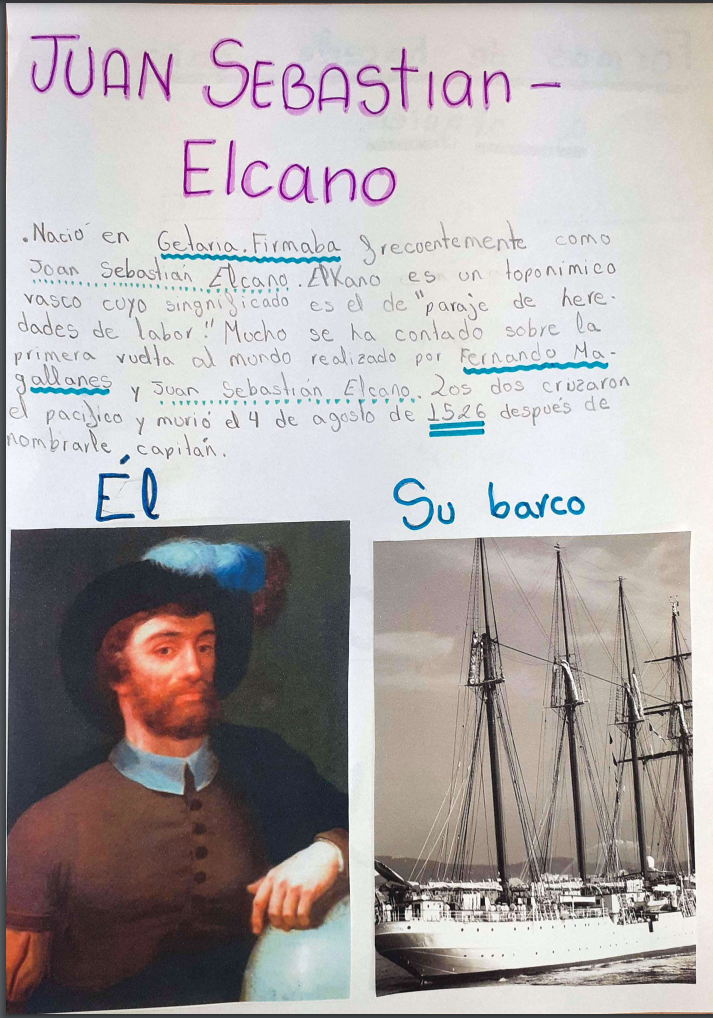 JUAN SEBAStian -
Elcano
.Nació en Getaria. Firmaba frecuentemente como
Joan Sebastián Elcano. Elkano es un toponimico
vasco cuyo singnificado es el de "paraje de here-
dades de labor." Mucho se ha contado sobre la
primera vuelta al mundo realizado por Fernando Ma-
gallanes y Juan Sebastián Elcano. Los dos cruzaron
el pacifico y murió el 4 de agosto de 1526 después de
nombrarle capitán.
Él
Su barco